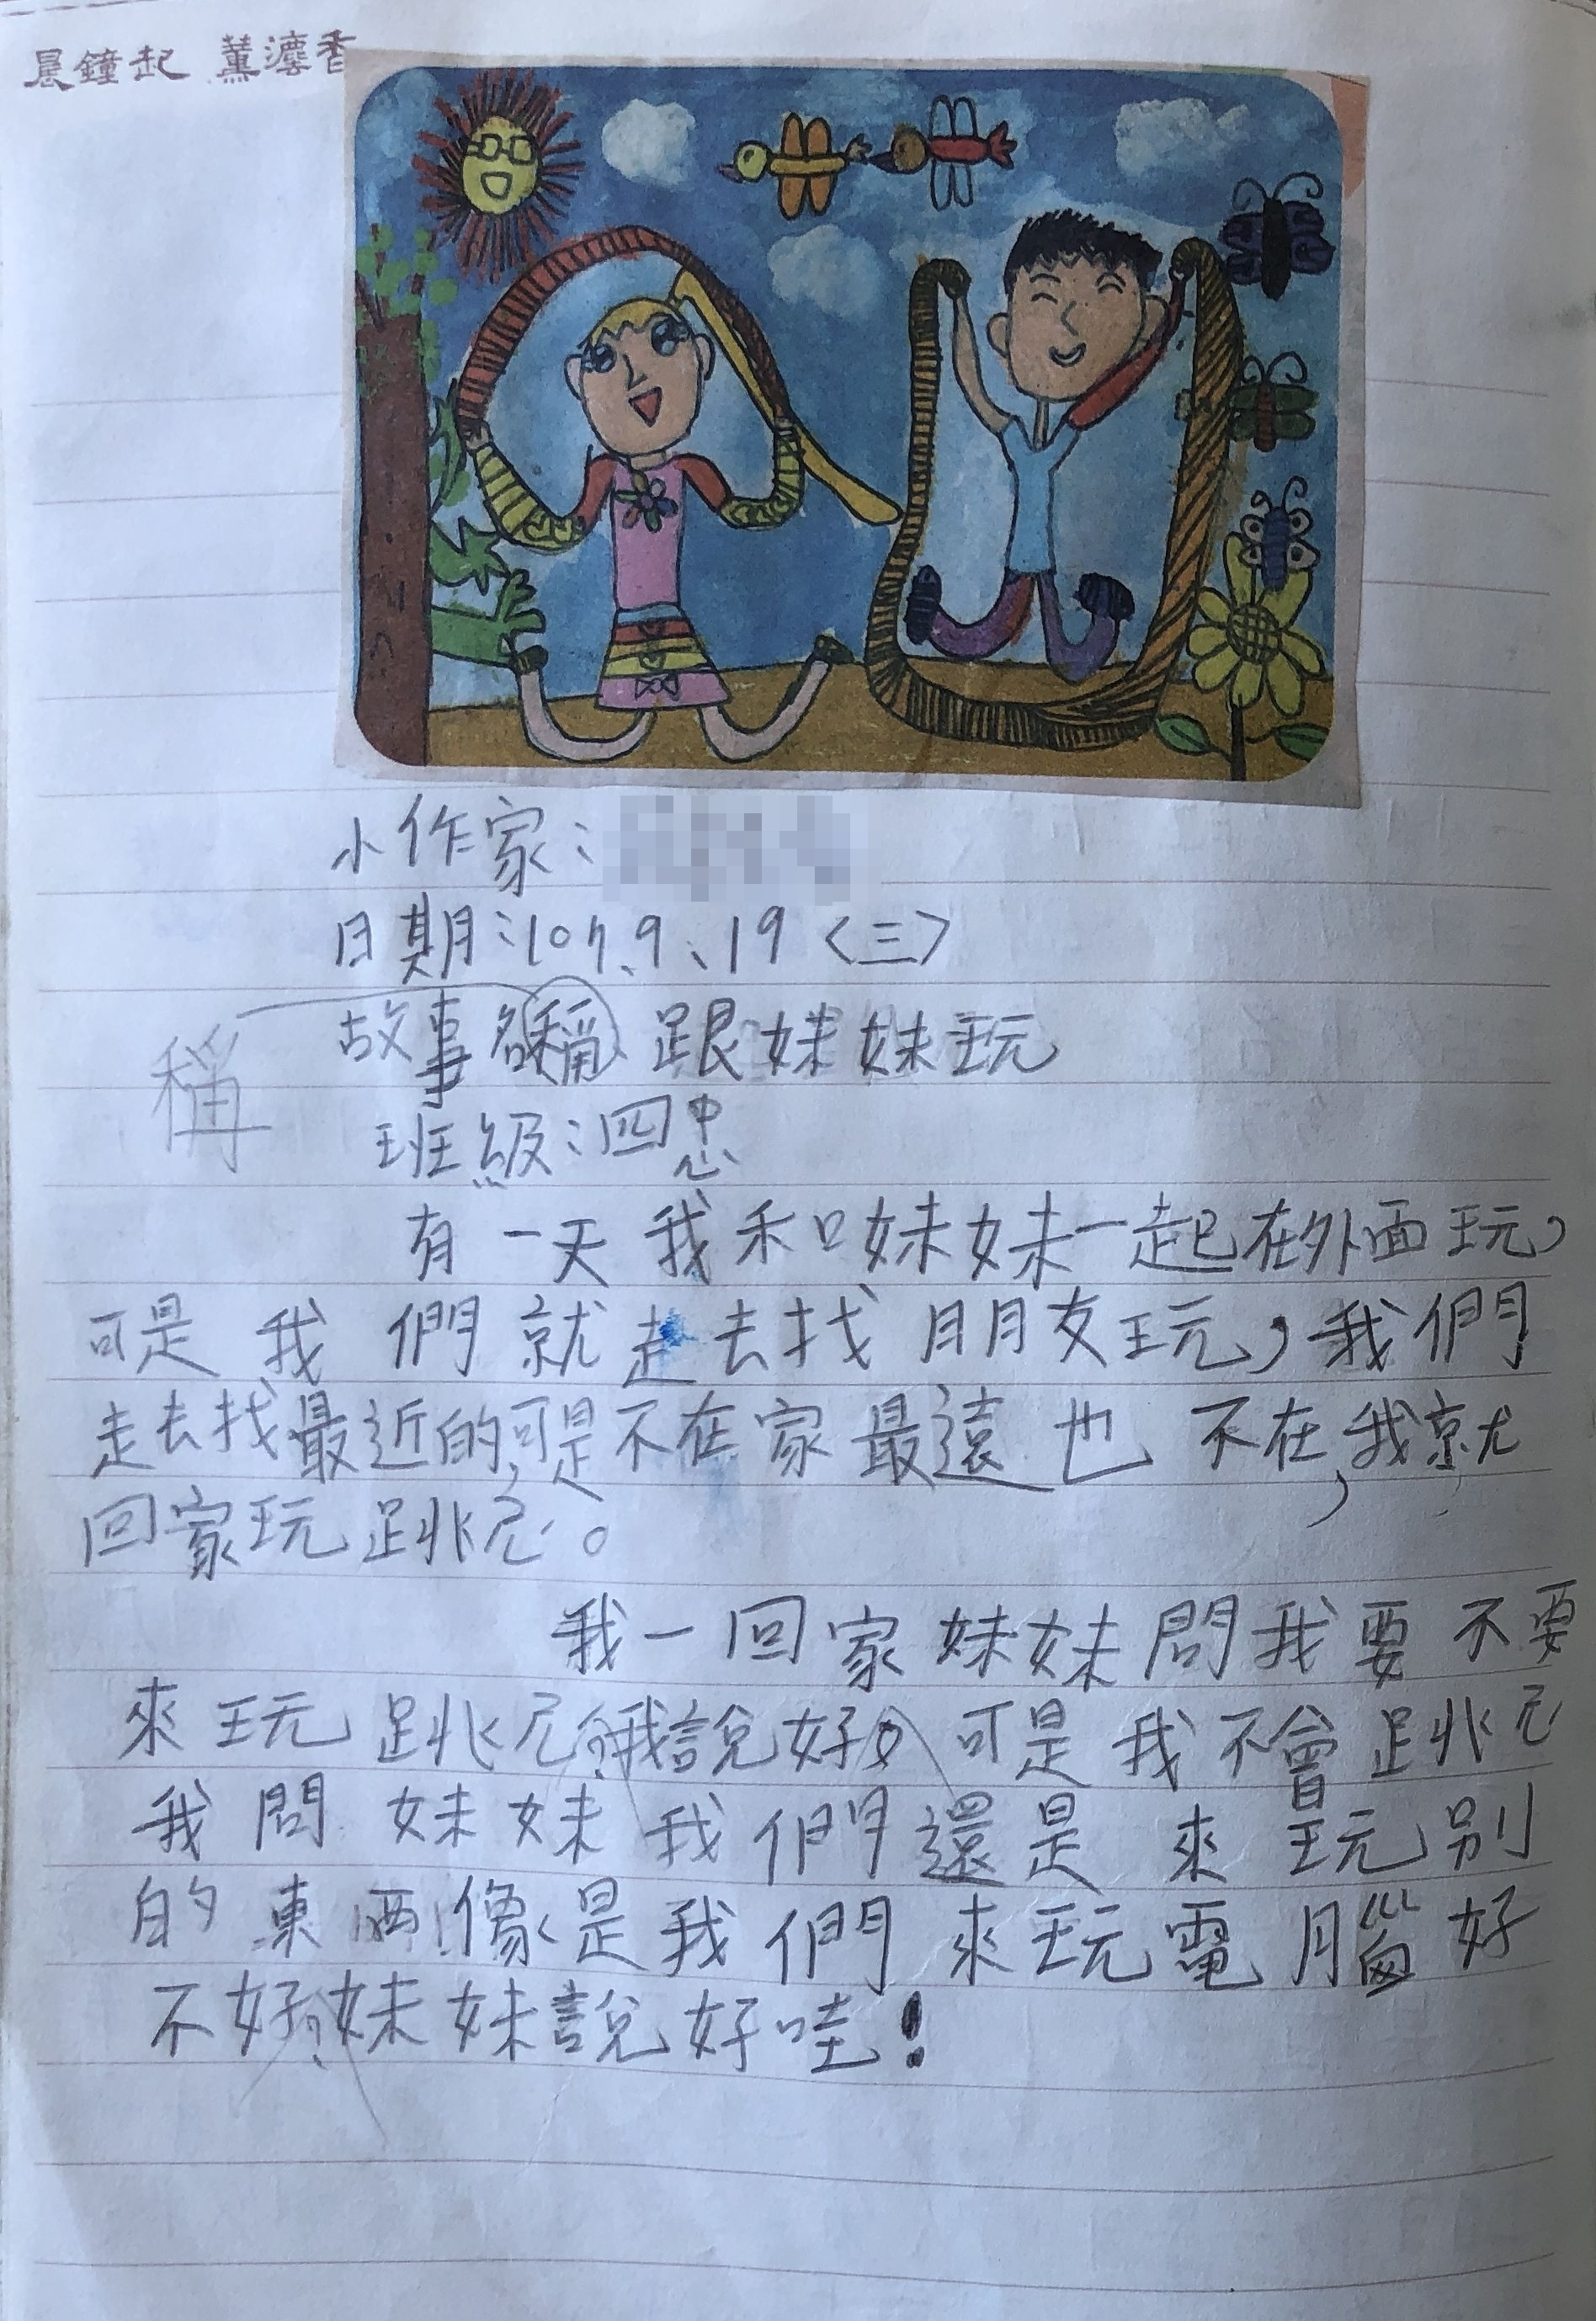 晨鐘起 薰瀀香
小作家：
日期：107、9、19〈三〉
故事名稱 跟妹妹玩
稱
班級：四忠
有一天我和妹妹一起在外面玩，
可是我們就走去找朋友玩，我們
走去找最近的，可是不在家最遠也不在，我就
回家玩跳尼。
我一回家妹妹問我要不要
來玩跳尼？我說好，可是我不會跳尼
我問妹妹我們還是來玩別
的東西像是我們來玩電腦好
不好？妹妹說好哇！